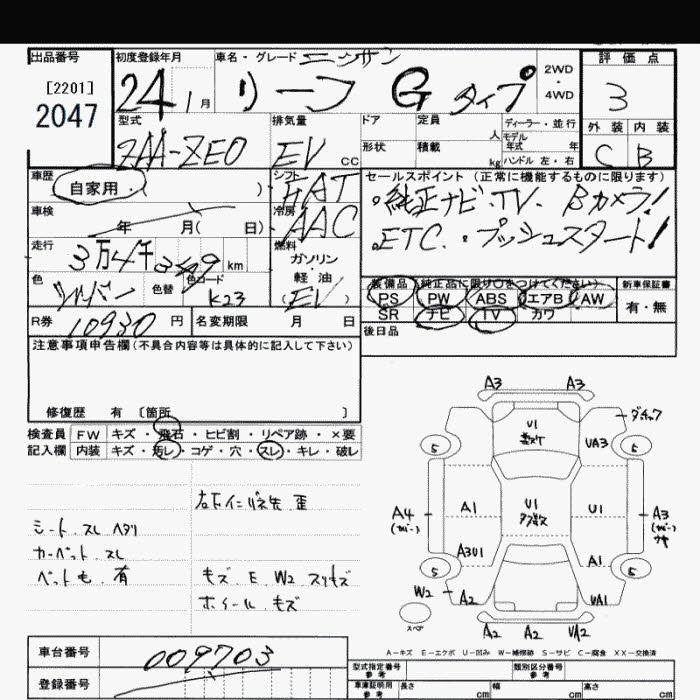 出品番号 初度登録年月 車名・グレード ニッサン 評価点
[2201] 2047 24 1月 リーフ G タイプ 2WD・4WD 3
型式 排気量 ドア 定員 人 ディーラー・並行 外装 内装
ZAA-ZE0 EV cc 形状 積載 kg モデル年式 年 ハンドル 左・右 C B
車歴 自家用・( ) シフト FAT セールスポイント(正常に機能するものに限ります)
車検 年 月( 日) 冷房 AAC 純正ナビ・TV・Bカメラ!
走行 3万4千349km 燃料 ガソリン・軽油 (EV) ETC・プッシュスタート!
色 シルバー 色替 色コード K23 装備品(純正品に限り○をつけてください) 新車保証書
PS PW ABS エアB AW 有・無
SR ナビ TV カワ
R券 10930円 名変期限 月 日 後日品
注意事項申告欄(不具合内容等は具体的に記入して下さい)
修復歴 有 〔箇所 〕
検査員 FW キズ・飛石・ヒビ割・リペア跡・×要
記入欄 内装 キズ・汚レ・コゲ・穴・スレ・キレ・破レ
シート、スレ ヘタリ
カーペット、スレ
ペット毛、有
キズ E W2 スリキズ
ホイール キズ
A3 A3
ダッチフ
U1
UA3
5 5
A4 (カバー) A1 U1 U1 A3 (カバー) ウキ
A3U1 A1
5 5
W2 A2 UA1
スペア
A2 A2 UA2
A-キズ E-エクボ U-凹み W-補修跡 S-サビ C-腐食 XX-交換済
車台番号 009703 型式指定番号 参考 類別区分番号 参考
登録番号 車庫証明用 参考 長さ cm 幅 cm 高さ cm